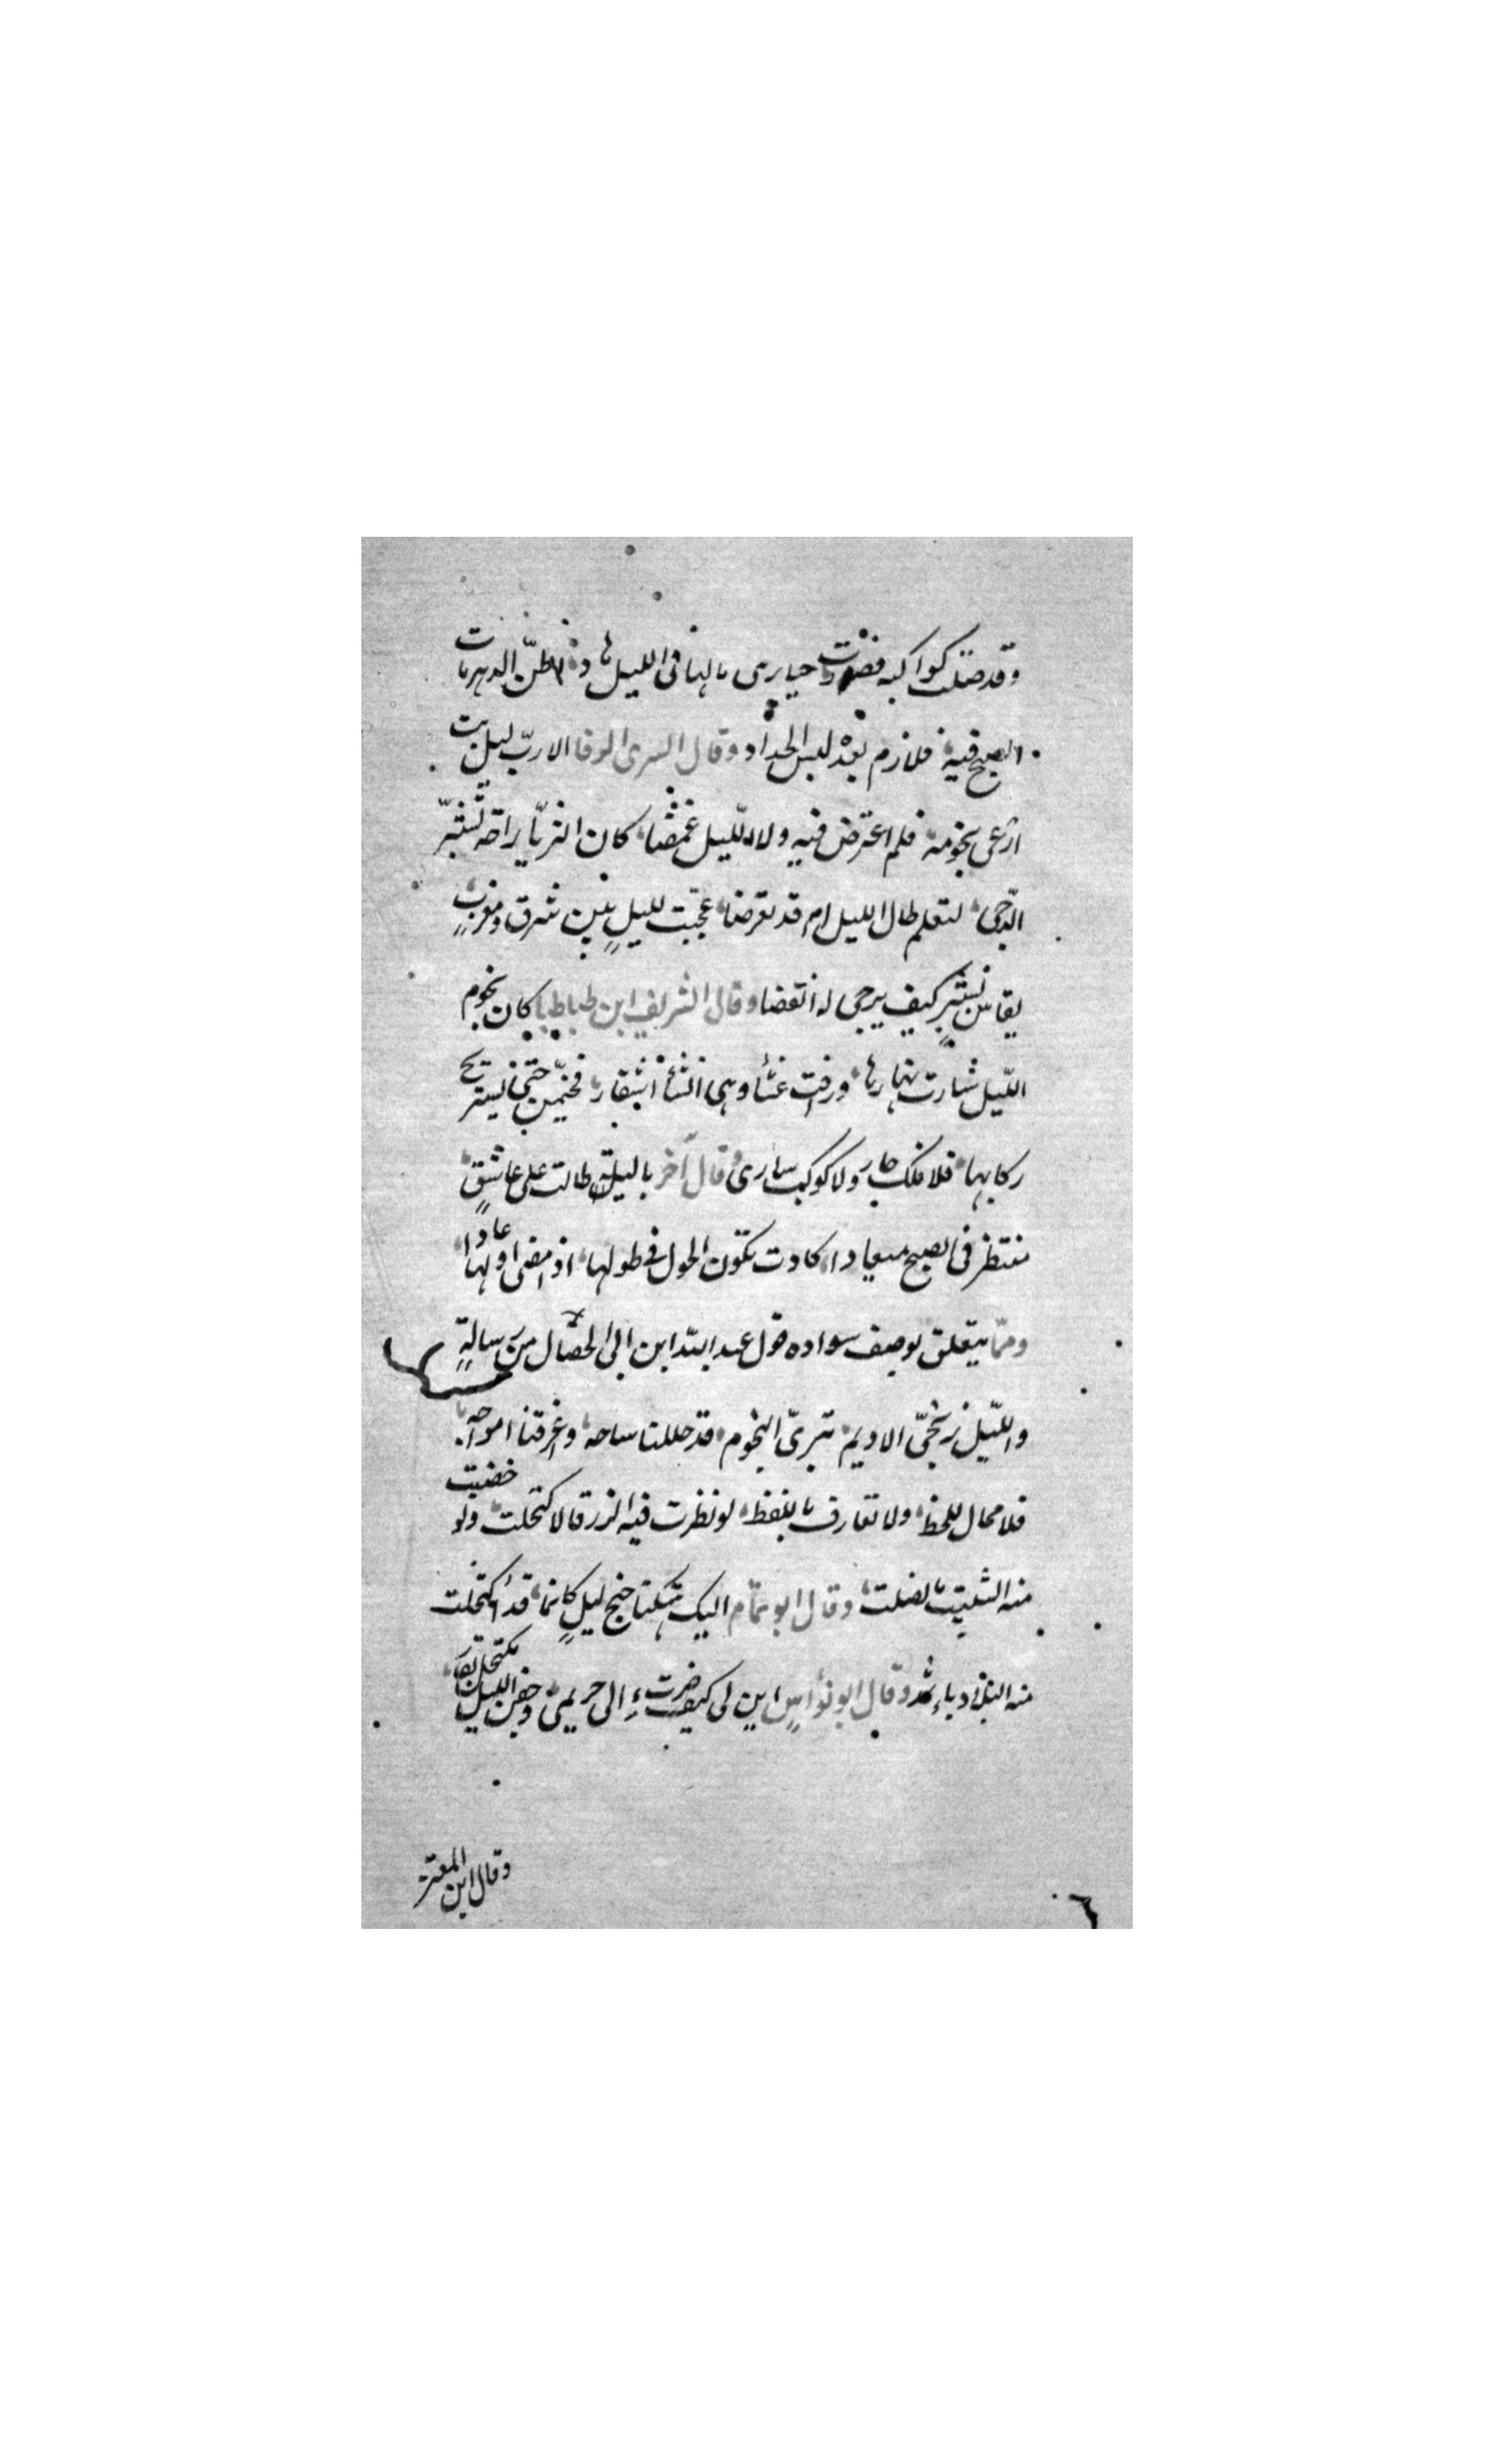 وقد ضلت كواكبه فضرت حيارى مالها فى الليل هاد اظن الدهر مات
الصبح فيه فلازم بعده لبس الحداد وقال السرى الرفا الا ربّ ليل بت
ارعى نجومه فلم اعترض فيه ولا الليل غمضا كان الثريّا راحة تشبّر
الدّجى لتعلم طال الليل ام قد تعرضا عجبت لليلٍ بين شرق ومغربٍ
يقاس بشبرٍ كيف يرجى له انقضا وقال الشريف ابن طباطبا كان نجوم
الليل سارت نهارها ووافت عشا وهى انضاء اسفار فخيّمن حتى يستريح
ركابها فلا فلك جار ولا كوكب سارى وقال آخر يا ليلة طالت على عاشقٍ
منتظر فى الصبح ميعادا كادت تكون الحول فى طولها اذ مضى اولها عادا
وممّا يتعلق بوصف سواده قول عبد الله ابن ابى الخصال من رسالةٍ
والليل زنجىّ الاديم تبرىّ النجوم قد جللنا ساجه واغرقتنا امواجه
فلا مجال للحظ ولا تعارف بلفظ لو نظرت فيه الزرقا لاكتحلت ولو خضبت
منه الشيبة لنصلت وقال ابو تمّام اليك هتكنا جنح ليلٍ كانما قد اكتحلت
منه البلاد باثمد وقال ابو نواس ابن لى كيف صرت الى حريمى وجفن الليل مكتحل بقار
وقال ابن المعتز